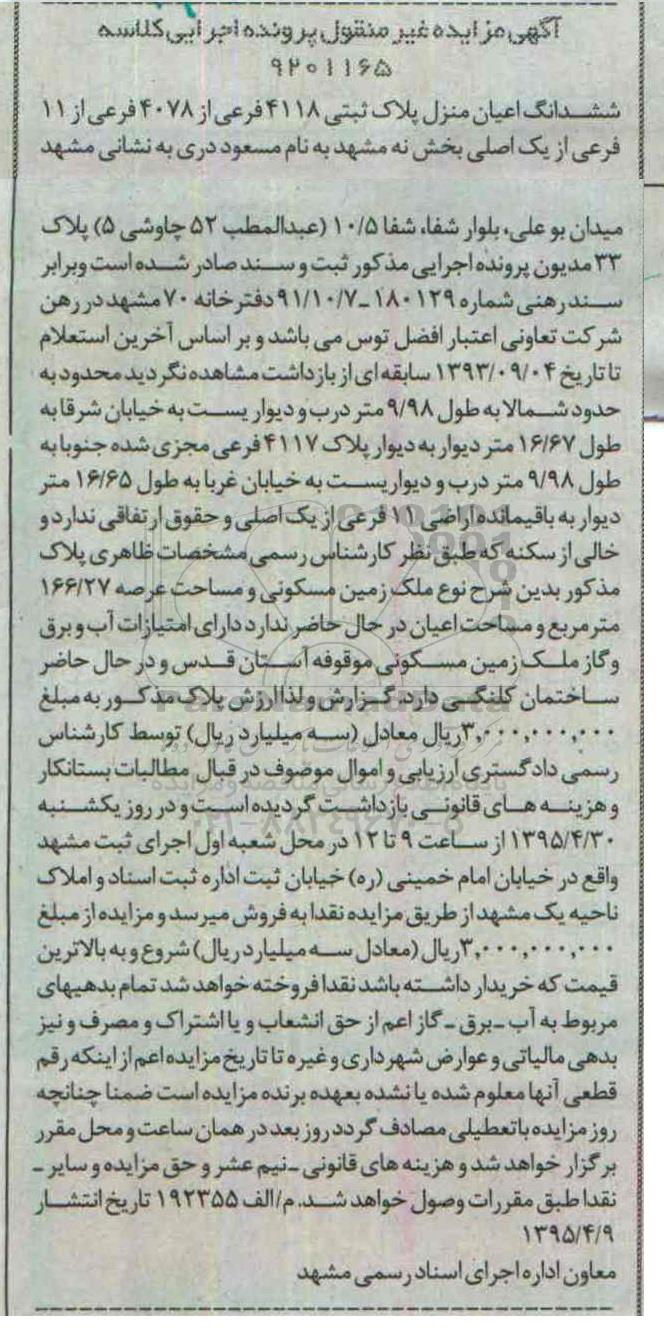 آگهی مزایده غیر منقول پرونده اجرایی کلاسه
۹۲۰۱۱۶۵
ششدانگ اعیان منزل پلاک ثبتی ۴۱۱۸ فرعی از ۴۰۷۸ فرعی از ۱۱
فرعی از یک اصلی بخش نه مشهد به نام مسعود دری به نشانی مشهد
میدان بو علی، بلوار شفا، شفا ۱۰/۵ (عبدالمطب ۵۲ چاوشی ۵) پلاک
۳۳ مدیون پرونده اجرایی مذکور ثبت و سند صادر شده است وبرابر
سند رهنی شماره ۱۸۰۱۲۹ـ۹۱/۱۰/۷ دفترخانه ۷۰ مشهد در رهن
شرکت تعاونی اعتبار افضل توس می باشد و بر اساس آخرین استعلام
تا تاریخ ۱۳۹۳/۰۹/۰۴ سابقه ای از بازداشت مشاهده نگردید محدود به
حدود شمالا به طول ۹/۹۸ متر درب و دیوار یست به خیابان شرقا به
طول ۱۶/۶۷ متر دیوار به دیوار پلاک ۴۱۱۷ فرعی مجزی شده جنوبا به
طول ۹/۹۸ متر درب و دیواریست به خیابان غربا به طول ۱۶/۶۵ متر
دیوار به باقیمانده اراضی ۱۱ فرعی از یک اصلی و حقوق ارتفاقی ندارد و
خالی از سکنه که طبق نظر کارشناس رسمی مشخصات ظاهری پلاک
مذکور بدین شرح نوع ملک زمین مسکونی و مساحت عرصه ۱۶۶/۲۷
متر مربع و مساحت اعیان در حال حاضر ندارد دارای امتیازات آب و برق
و گاز ملک زمین مسکونی موقوفه آستان قدس و در حال حاضر
ساختمان کلنگی دارد. گزارش و لذا ارزش پلاک مذکور به مبلغ
۳,۰۰۰,۰۰۰,۰۰۰ریال معادل (سه میلیارد ریال) توسط کارشناس
رسمی دادگستری ارزیابی و اموال موضوف در قبال مطالبات بستانکار
و هزینه های قانونی بازداشت گردیده است و در روز یکشنبه
۱۳۹۵/۴/۳۰ از ساعت ۹ تا ۱۲ در محل شعبه اول اجرای ثبت مشهد
واقع در خیابان امام خمینی (ره) خیابان ثبت اداره ثبت اسناد و املاک
ناحیه یک مشهد از طریق مزایده نقدا به فروش میرسد و مزایده از مبلغ
۳,۰۰۰,۰۰۰,۰۰۰ریال (معادل سه میلیارد ریال) شروع و به بالاترین
قیمت که خریدار داشته باشد نقدا فروخته خواهد شد تمام بدهیهای
مربوط به آب ـ برق ـ گاز اعم از حق انشعاب و یا اشتراک و مصرف و نیز
بدهی مالیاتی و عوارض شهرداری و غیره تا تاریخ مزایده اعم از اینکه رقم
قطعی آنها معلوم شده یا نشده بعهده برنده مزایده است ضمنا چنانچه
روز مزایده با تعطیلی مصادف گردد روز بعد در همان ساعت و محل مقرر
برگزار خواهد شد و هزینه های قانونی ـ نیم عشر و حق مزایده و سایر ـ
نقدا طبق مقررات وصول خواهد شد. م/الف ۱۹۲۳۵۵ تاریخ انتشار
۱۳۹۵/۴/۹
معاون اداره اجرای اسناد رسمی مشهد